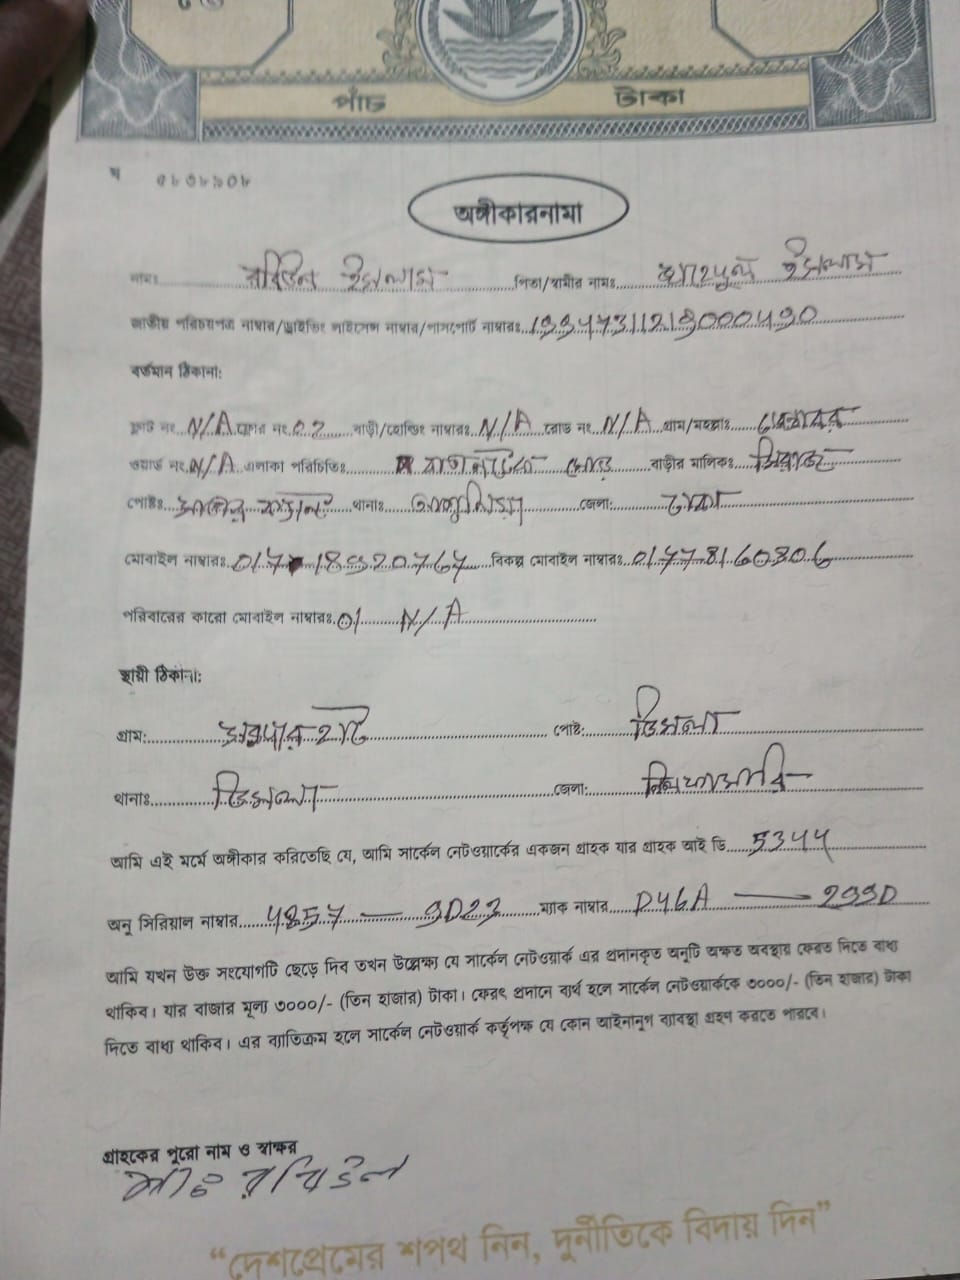 পাঁচ টাকা
অঙ্গীকারনামা
নামঃ রবিউল ইসলাম পিতা/স্বামীর নামঃ ইসলাম
জাতীয় পরিচয়পত্র নাম্বার/ড্রাইভিং লাইসেন্স নাম্বার/পাসপোর্ট নাম্বারঃ
বর্তমান ঠিকানা:
ফ্লাট নং N/A ফ্লোর নং ০২ বাড়ী/হোল্ডিং নাম্বারঃ N/A রোড নং N/A গ্রাম/মহল্লাঃ
ওয়ার্ড নং N/A এলাকা পরিচিতিঃ রোড বাড়ীর মালিকঃ
পোষ্টঃ থানাঃ আশুলিয়া জেলা: ঢাকা
মোবাইল নাম্বারঃ বিকল্প মোবাইল নাম্বারঃ 01778160806
পরিবারের কারো মোবাইল নাম্বারঃ 01 N/A
স্থায়ী ঠিকানা:
গ্রাম: পোষ্ট: ডিমলা
থানাঃ ডিমলা জেলা: নিলফামারি
আমি এই মর্মে অঙ্গীকার করিতেছি যে, আমি সার্কেল নেটওয়ার্কের একজন গ্রাহক যার গ্রাহক আই ডি 5344
অনু সিরিয়াল নাম্বার 4857 — 9D23 ম্যাক নাম্বার D46A — 2990
আমি যখন উক্ত সংযোগটি ছেড়ে দিব তখন উল্লেখ্য যে সার্কেল নেটওয়ার্ক এর প্রদানকৃত অনুটি অক্ষত অবস্থায় ফেরত দিতে বাধ্য
থাকিব। যার বাজার মূল্য ৩০০০/- (তিন হাজার) টাকা। ফেরৎ প্রদানে ব্যর্থ হলে সার্কেল নেটওয়ার্ককে ৩০০০/- (তিন হাজার) টাকা
দিতে বাধ্য থাকিব। এর ব্যাতিক্রম হলে সার্কেল নেটওয়ার্ক কর্তৃপক্ষ যে কোন আইনানুগ ব্যাবস্থা গ্রহণ করতে পারবে।
গ্রাহকের পূরো নাম ও স্বাক্ষর
মোঃ রবিউল
“দেশপ্রেমের শপথ নিন, দুর্নীতিকে বিদায় দিন”